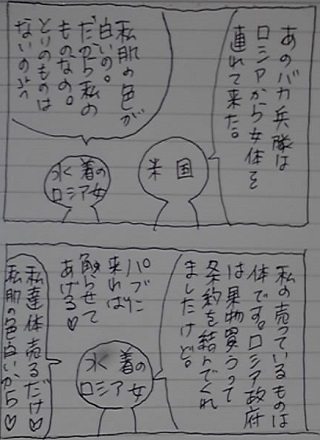 あのバカ兵隊は
ロシアから女体を
連れて来た。
米国
私肌の色が
白いの。
だから私の
ものなの。
とりのものは
ないの
水着の
ロシア女
私の売っているものは
体です。ロシア政府
は果物買うって
条約を結んでくれ
ましたけど。
パブに
来れば
触らせて
あげる♡
水着の
ロシア女
私達体売るだけ♡
私肌の色白いから♡